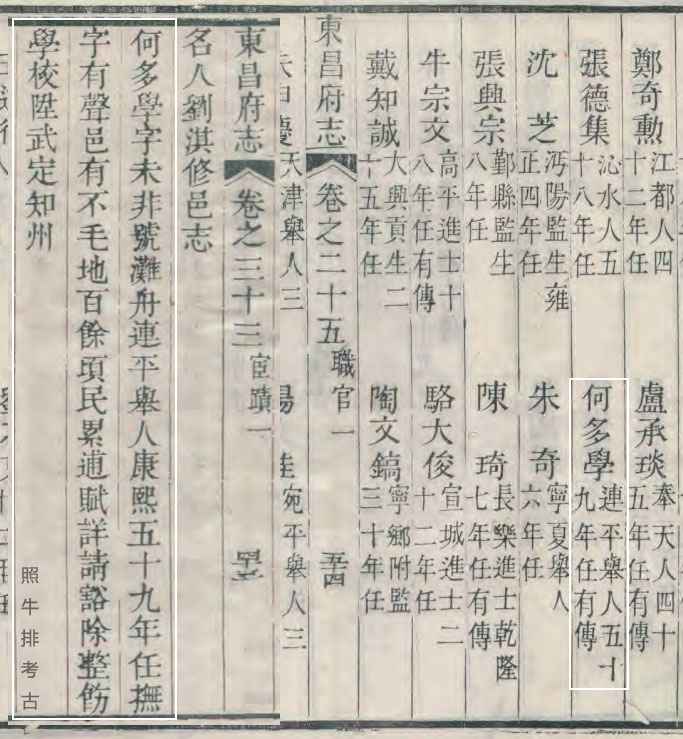 鄭奇勳 江都人四十二年任 盧承琰 奉天人四十五年任有傳
張德集 沁水人五十八年任 何多學 連平舉人五十九年任有傳
沈芝 沔陽監生雍正四年任 朱奇 寧夏舉人六年任
張興宗 鄞縣監生八年任 陳琦 長樂進士乾隆七年任有傳
牛宗文 高平進士十八年任有傳 駱大俊 宣城進士二十二年任
戴知誠 大興貢生二十五年任 陶文鎬 寧鄉附監三十年任
東昌府志 卷之二十五 職官一
天津舉人三 宛平舉人三
東昌府志 卷之三十三 宦蹟一
名人劉淇修邑志
何多學字未非號灘舟連平舉人康熙五十九年任撫
字有聲邑有不毛地百餘頃民累逋賦詳請豁除整飭
學校陞武定知州
照牛排考古